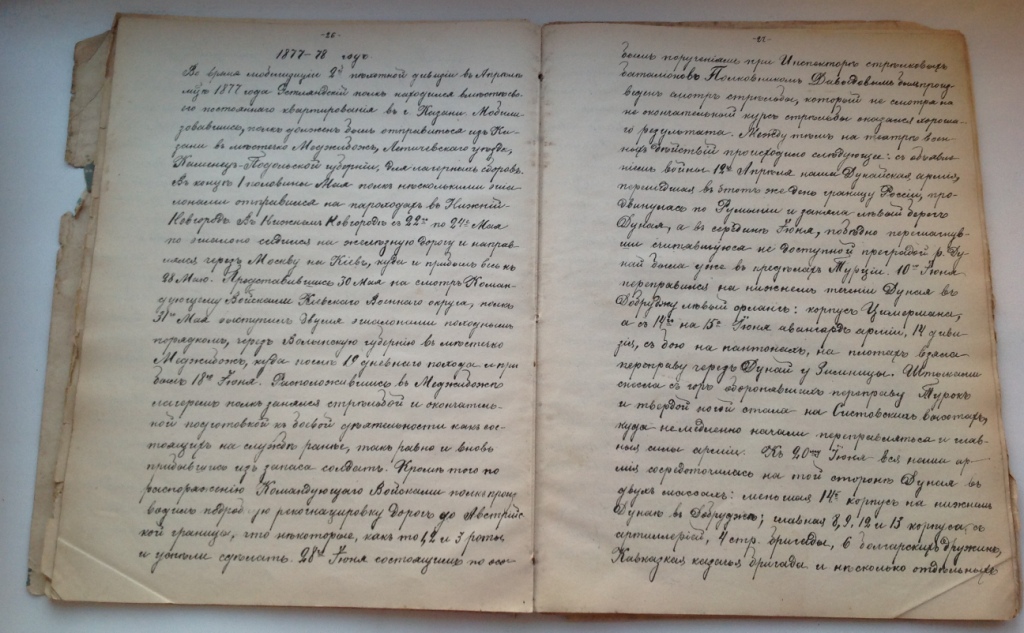 -26-
1877-78 годъ
Во время мобилизаціи 2й пѣхотной дивизіи въ Апрѣлѣ
мѣс. 1877 года Эстляндскій полкъ находился въ мѣстѣ сво-
его постояннаго квартированія въ г. Казани. Мобили-
зовавшись, полкъ долженъ былъ отправиться изъ Ка-
зани въ мѣстечко Меджибожъ, Летичевскаго уѣзда,
Каменецъ-Подольской губерніи, для лагернаго сбора.
Въ концѣ 1 половины Мая полкъ нѣсколькими эше-
лонами отправился на пароходахъ въ Нижній-
Новгородъ. Въ Нижнемъ Новгородѣ съ 22го по 24е Мая
по эшелонно садился на желѣзную дорогу и направ-
лялся черезъ Москву на Кіевъ, куда и прибылъ весь къ
28 Маю. Представившись 30 Мая на смотръ Коман-
дующему Войсками Кіевскаго Военнаго округа, полкъ
31го Мая выступилъ двумя эшелонами походнымъ
порядкомъ, черезъ Волынскую губернію въ мѣстечко
Меджибожъ, куда послѣ 19 дневнаго похода и при-
былъ 18го Іюня. Расположившись въ Меджибожѣ
лагеремъ полкъ занялся стрѣльбой и окончатель-
ной подготовкой къ боевой дѣятельности какъ сос-
тоящихъ на службѣ ранѣе, такъ равно и вновь
прибывшихъ изъ запаса солдатъ. Кромѣ того по
распоряженію Командующаго Войсками полкъ произ-
водилъ рекогнацировку дорогъ до Австрійс-
кой границы, что нѣкоторые, какъ то 2 и 3 роты
и успѣли сдѣлать. 28го Іюня состоящимъ по осо-
-27-
бымъ порученіямъ при Инспекторѣ стрѣлковыхъ
баталіоновъ Полковникомъ Давыдовымъ былъ произ-
веденъ смотръ стрѣльбы, которой не смотря на
не оконченный курсъ стрѣльбы оказался хороша-
го результата. Между тѣмъ на театрѣ воен-
ныхъ дѣйствій происходило слѣдующее: съ объявле-
ніемъ войны 12го Апрѣля наша Дунайская армія,
перешедшая въ этотъ же день границу Россіи, про-
двинулась по Румыніи и заняла лѣвый берегъ
Дуная, а въ серединѣ Іюня, побѣдно перешагнув-
ши считавшуюся не доступной преградой р. Ду-
най была уже въ предѣлахъ Турціи. 10го Іюня
переправился на нижнемъ теченіи Дуная въ
Добруджу лѣвый флангъ: корпусъ Цимермана,
а съ 14го на 15е Іюня авангардъ арміи, 14 диви-
зія, съ бою на пантонахъ, на плотахъ взяла
переправу чрезъ Дунай у Зимницы. Штыками
снесла съ горъ оборонявшихъ переправу Турокъ
и твердой ногой стала на Систовскихъ высотахъ,
куда немедленно начали переправляться и глав-
ныя силы арміи. Къ 20му Іюня вся наша ар-
мія сосредоточилась на той сторонѣ Дуная въ
двухъ массахъ: меньшая 14й корпусъ на нижнемъ
Дунаѣ въ Добруджѣ; главная 8, 9, 12 и 13 корпуса, съ
артиллеріей, 4 стр. бригады, 6 болгарскихъ дружинъ,
Кавказкая казачья бригада и нѣсколько отдѣльныхъ